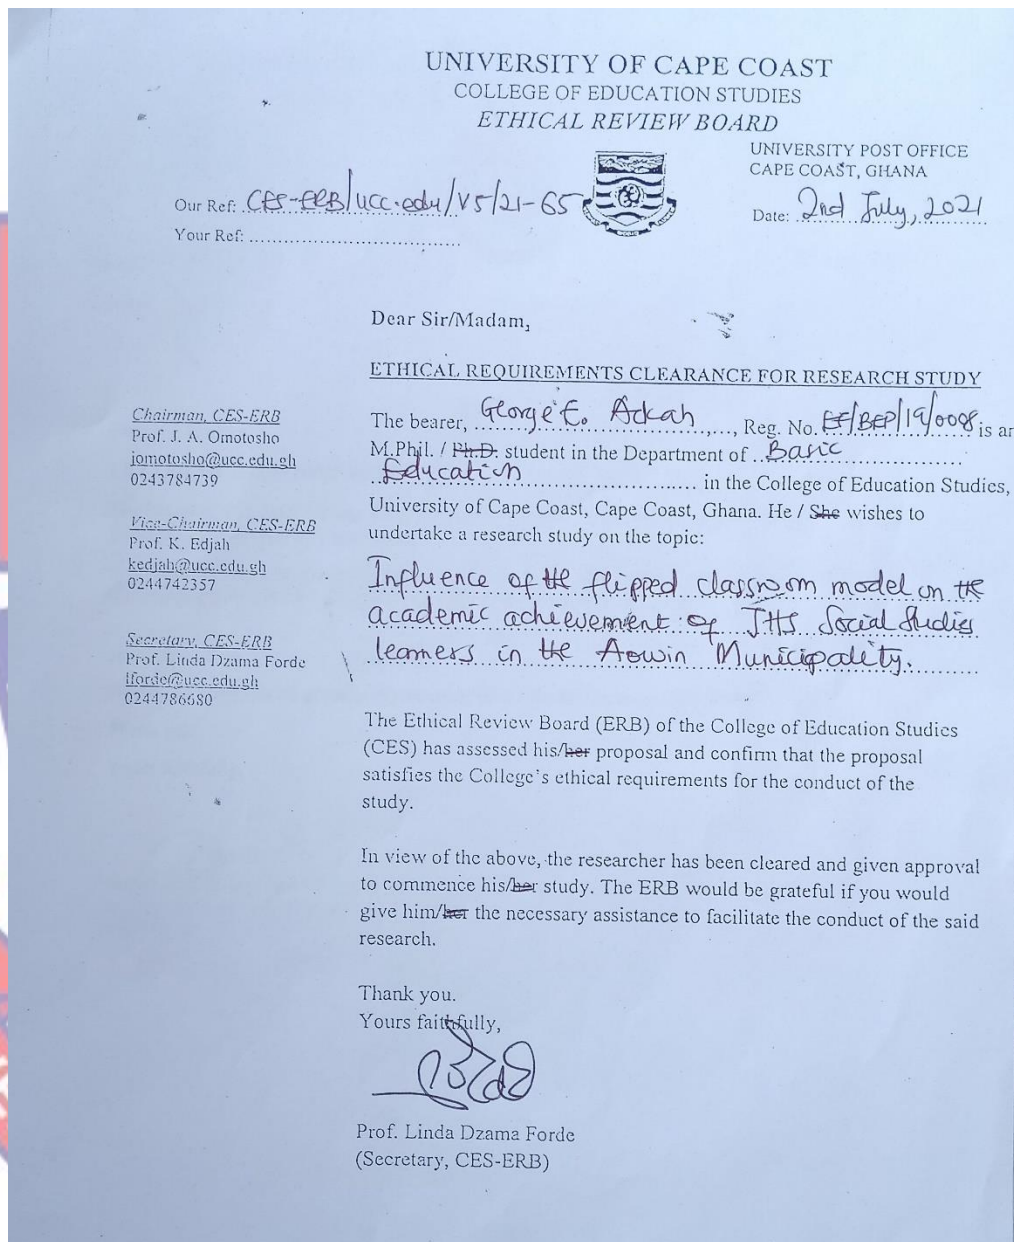 UNIVERSITY OF CAPE COAST
COLLEGE OF EDUCATION STUDIES
ETHICAL REVIEW BOARD
UNIVERSITY POST OFFICE
CAPE COAST, GHANA
Our Ref: CES-ERB/ucc.edu/V5/21-65
Date: 2nd July, 2021
Your Ref: ....................................
Dear Sir/Madam,
ETHICAL REQUIREMENTS CLEARANCE FOR RESEARCH STUDY
Chairman, CES-ERB
Prof. J. A. Omotosho
jomotosho@ucc.edu.gh
0243784739
Vice-Chairman, CES-ERB
Prof. K. Edjah
kedjah@ucc.edu.gh
0244742357
Secretary, CES-ERB
Prof. Linda Dzama Forde
lforde@ucc.edu.gh
0244786680
The bearer, George E. Ackah, Reg. No. EF/BEP/19/0008 is an
M.Phil. / Ph.D. student in the Department of Basic
Education in the College of Education Studies,
University of Cape Coast, Cape Coast, Ghana. He / She wishes to
undertake a research study on the topic:
Influence of the flipped classroom model on the
academic achievement of JHS Social Studies
learners in the Aowin Municipality.
The Ethical Review Board (ERB) of the College of Education Studies
(CES) has assessed his/her proposal and confirm that the proposal
satisfies the College's ethical requirements for the conduct of the
study.
In view of the above, the researcher has been cleared and given approval
to commence his/her study. The ERB would be grateful if you would
give him/her the necessary assistance to facilitate the conduct of the said
research.
Thank you.
Yours faithfully,
Prof. Linda Dzama Forde
(Secretary, CES-ERB)